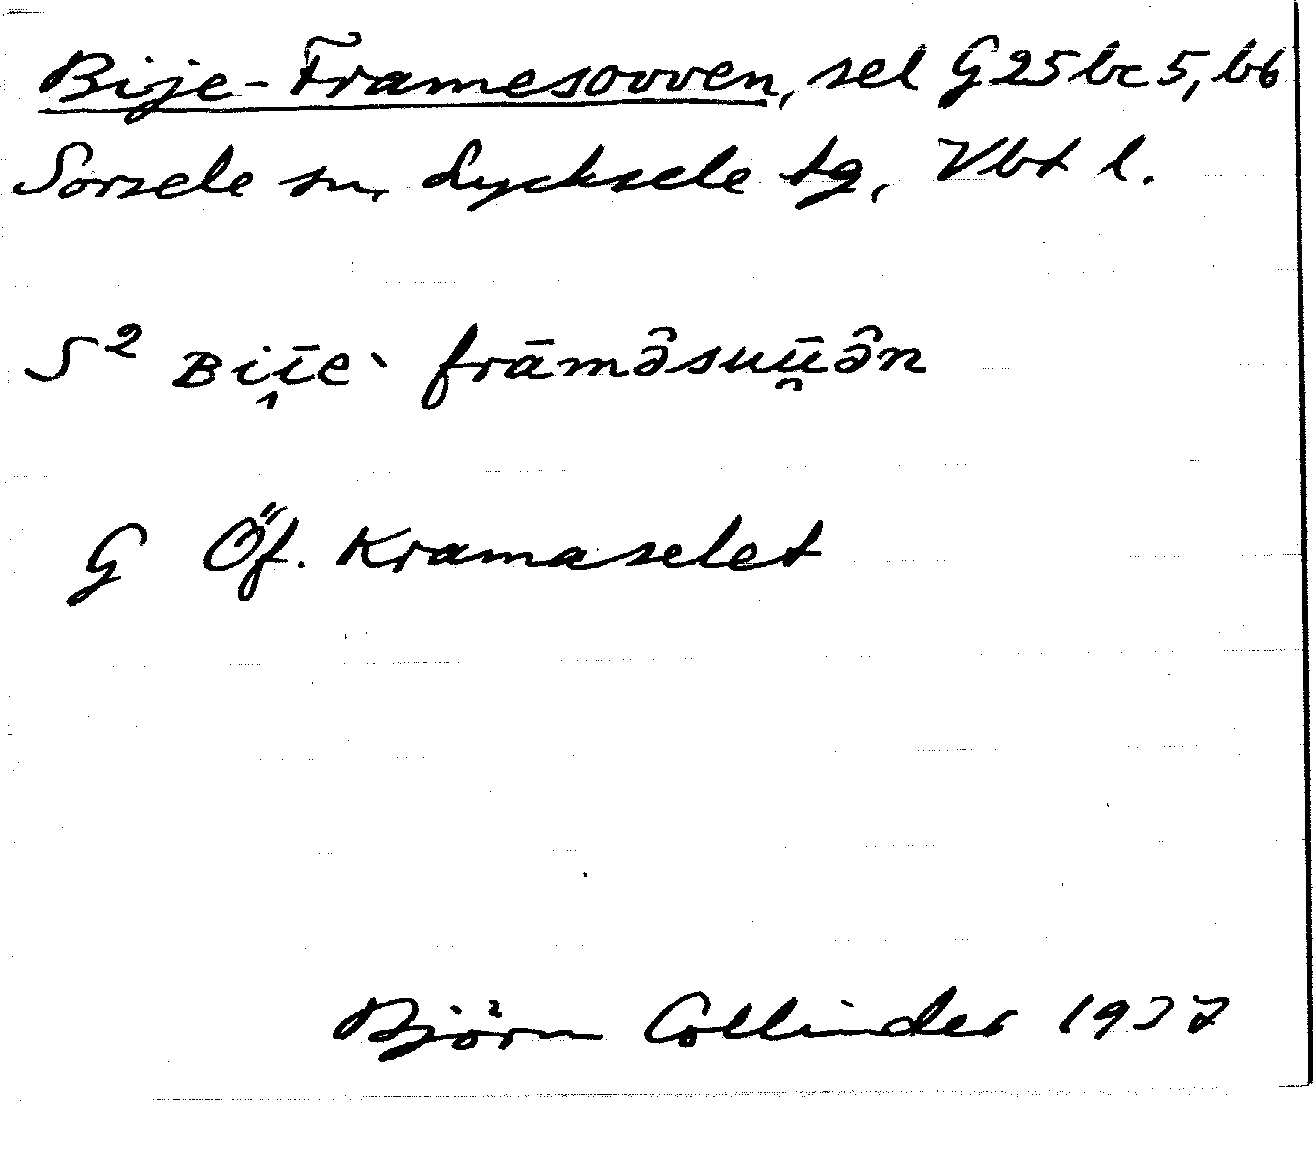 Bije-Framesovven, sel G 25 bc 5, b6
Sorsele sn, Lycksele tg, Vbt l.
S² Bi̭īe` frāmə̂suṷ̄ə̂n
G Öf. Kramaselet
Björn Collinder 1937